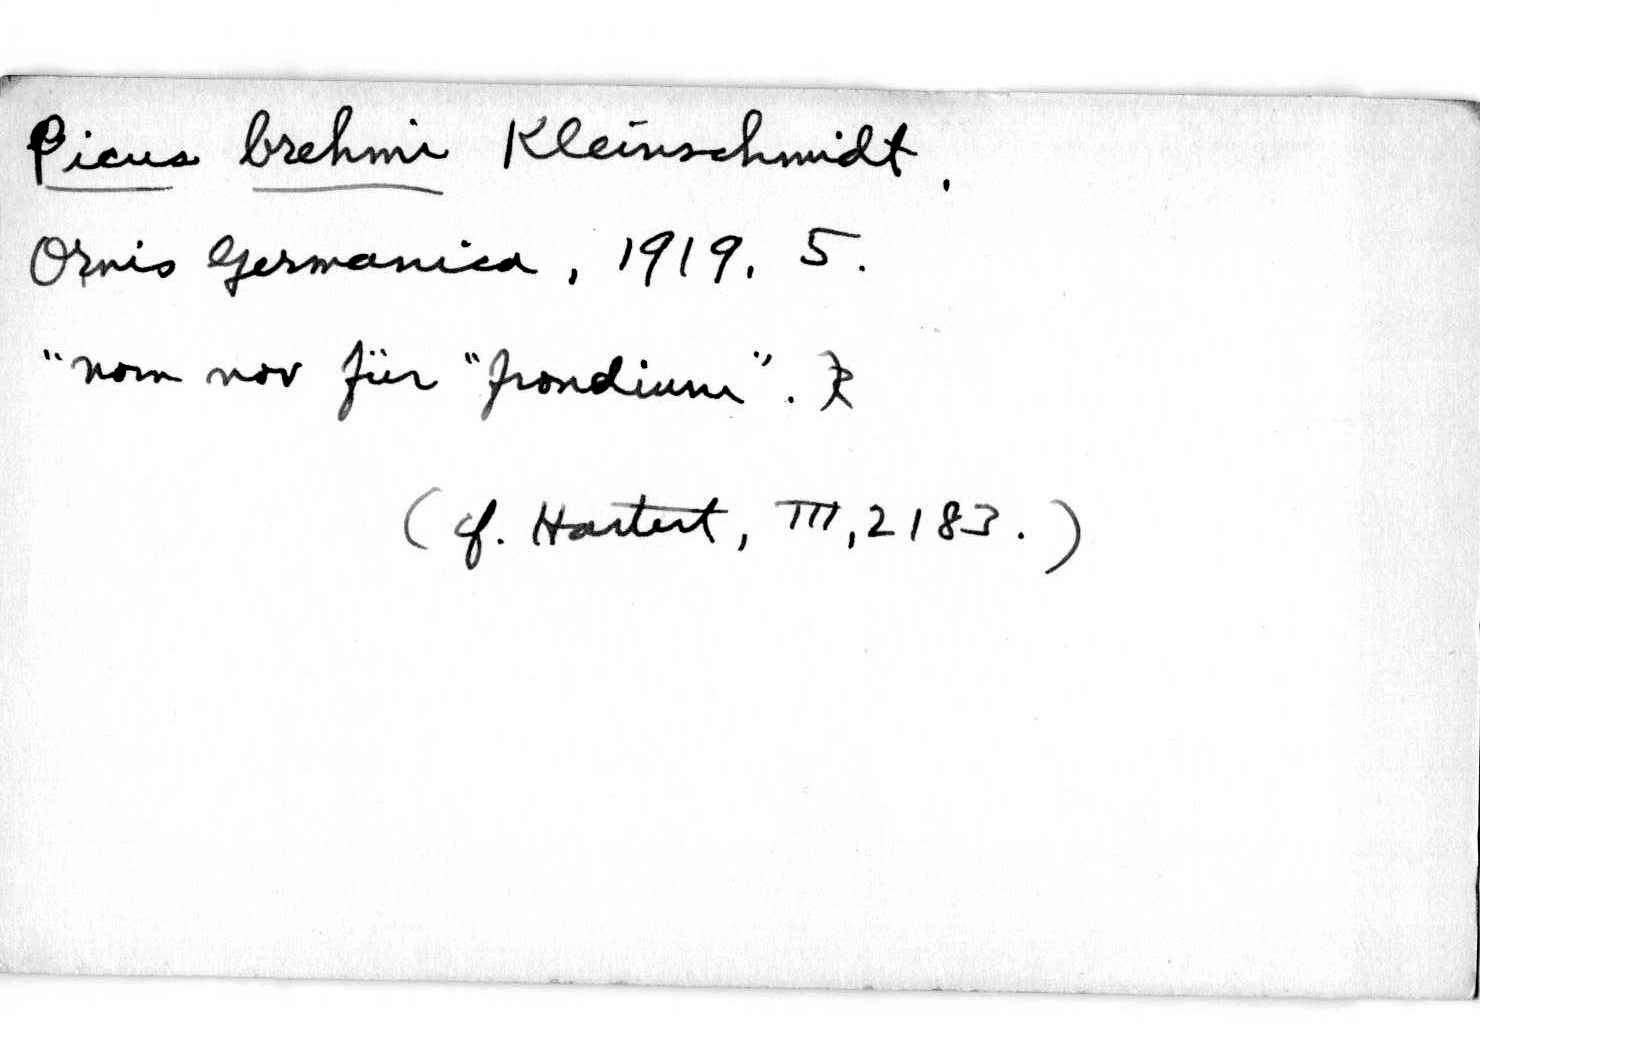 Picus brehmi Kleinschmidt.
Ornis Germanica, 1919. 5.
"nom nov für "frondium".
(cf. Hartert, III, 2183.)